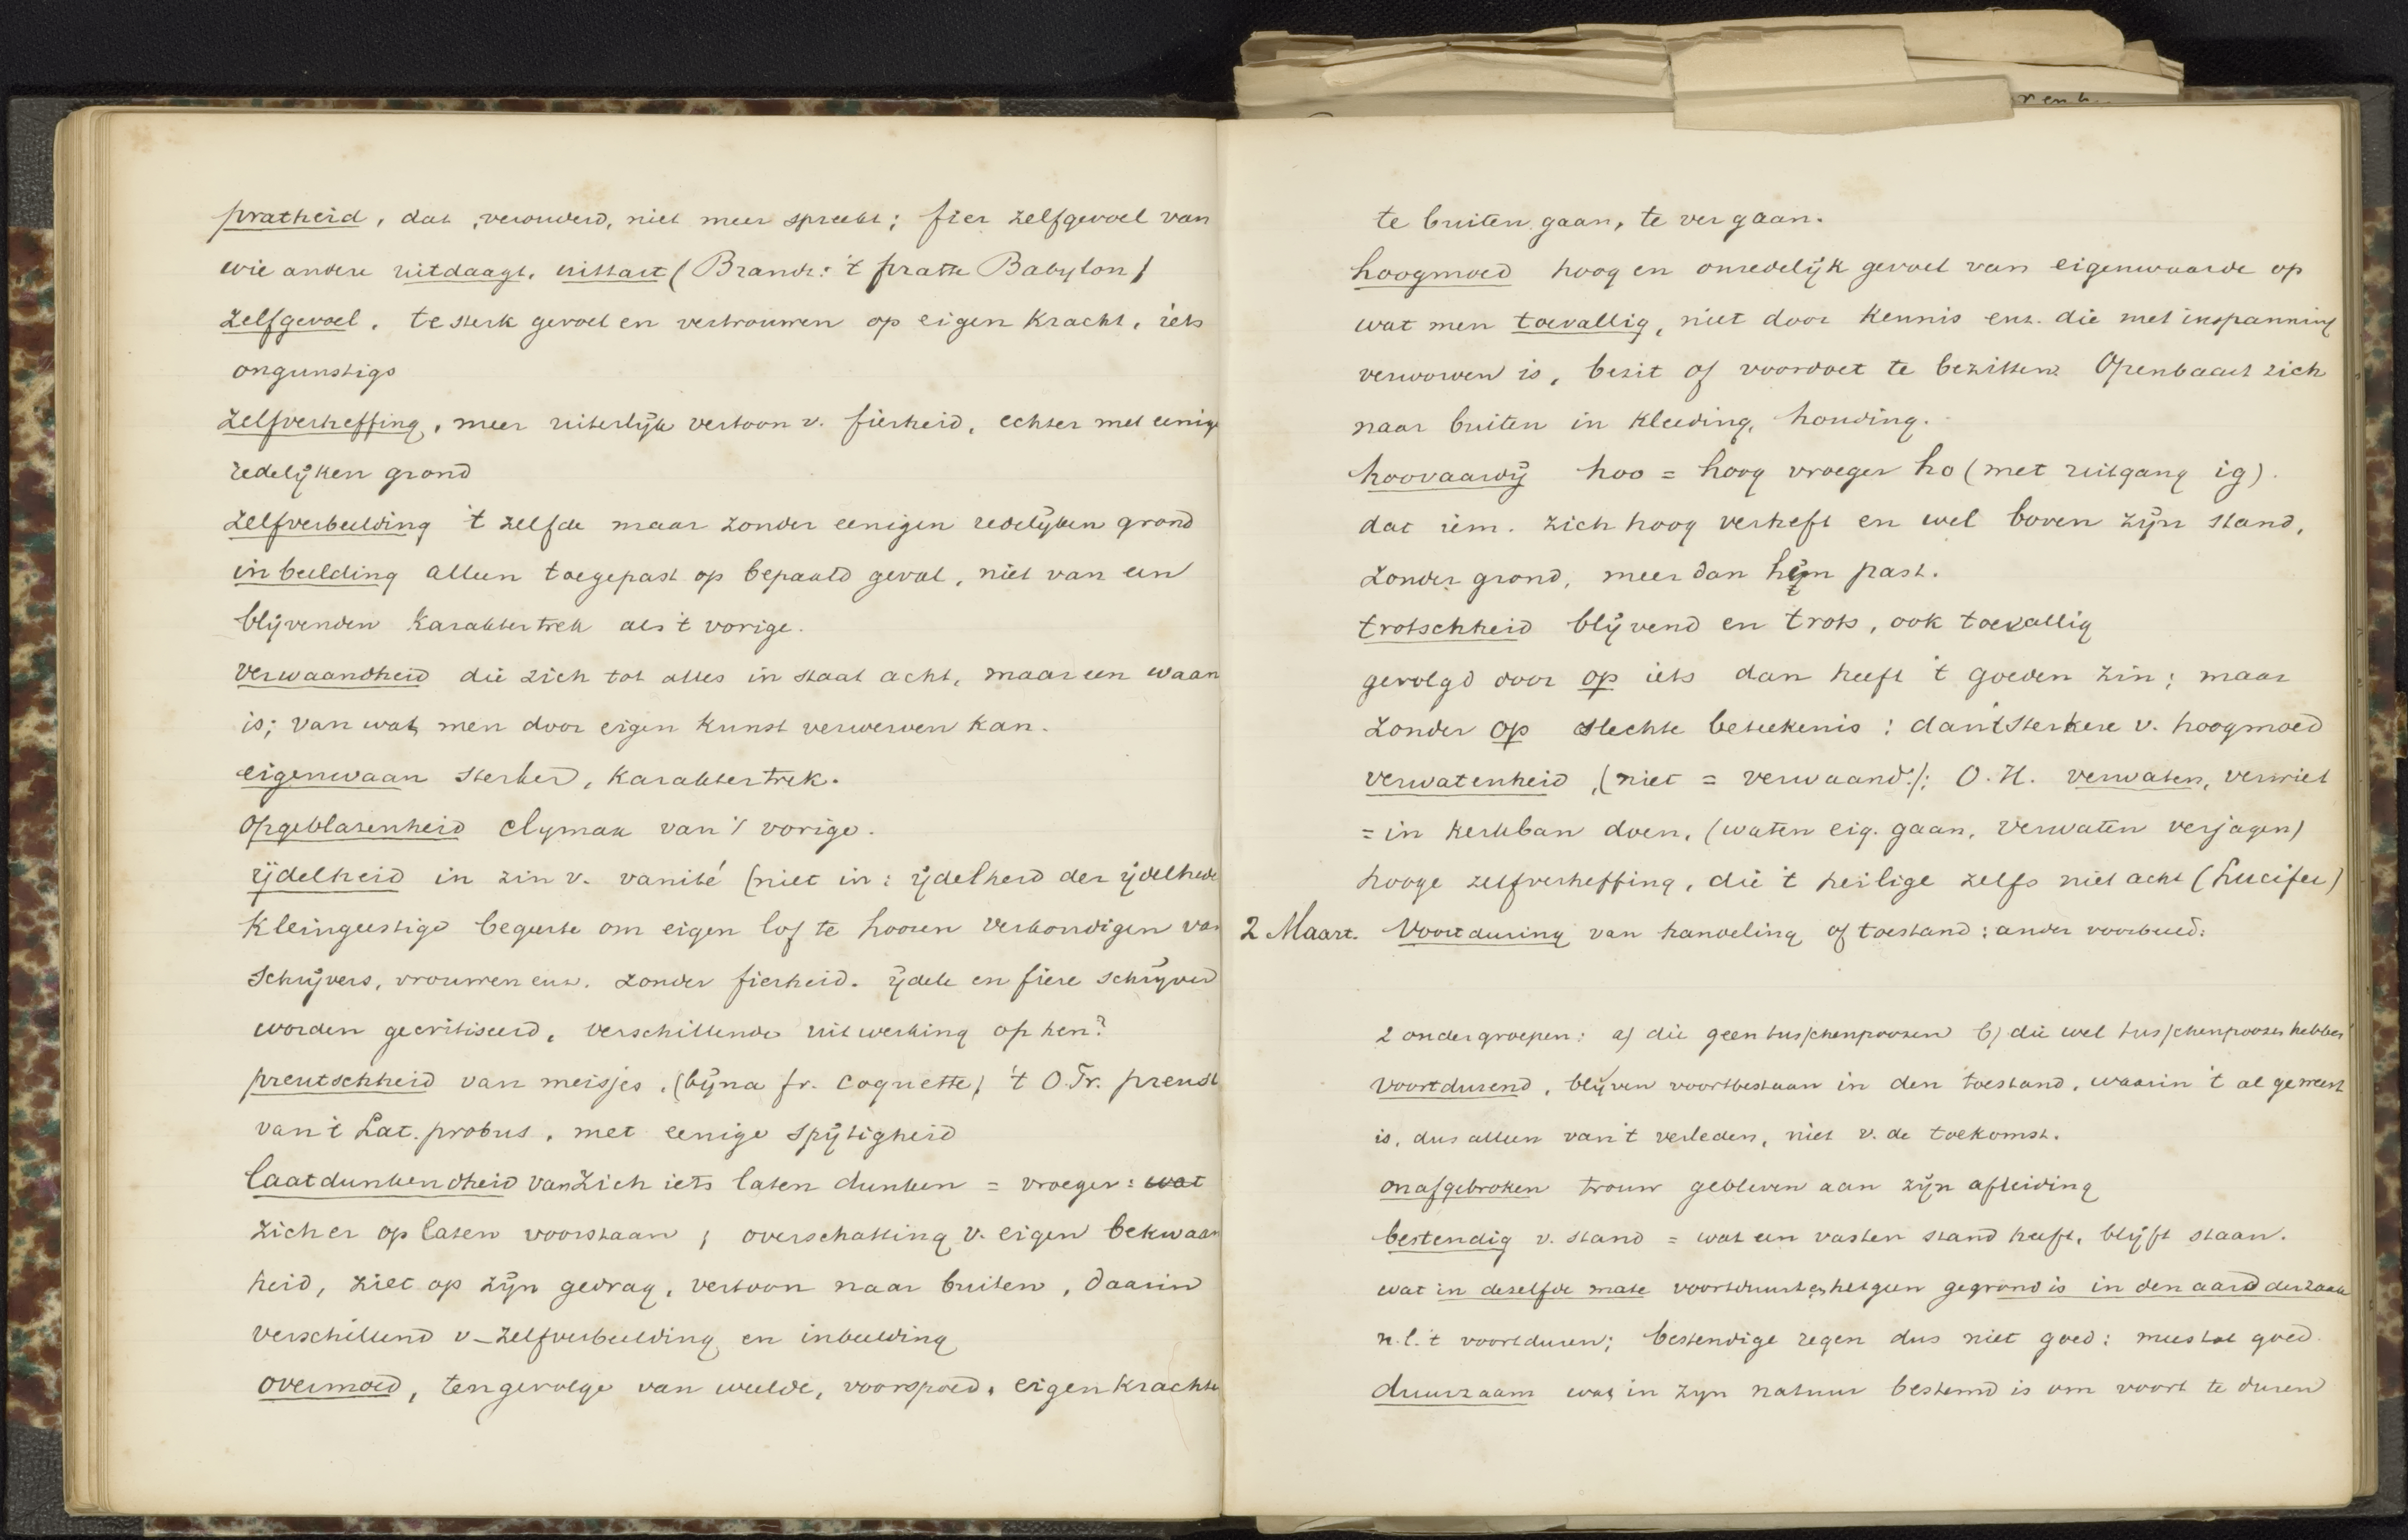 pratheid, dat, verouderd, niet meer spreekt; fier zelfgevoel van
wie andere uitdaagt, uittart (Brandt: 't pratte Babylon)
zelfgevoel, te sterk gevoel en vertrouwen op eigen kracht, iets
ongunstigs
zelfverheffing, meer uiterlijk vertoon v. fierheid, echter met eenige
redelijken grond
zelfverbeelding 't zelfde maar zonder eenigen redelijken grond
inbeelding alleen toegepast op bepaald geval, niet van een
blijvenden karaktertrek als 't vorige.
verwaandheid die zich tot alles in staat acht, maar een waan
is; van wat men door eigen kunst verwerven kan.
eigenwaan sterker, karaktertrek.
opgeblazenheid clymax van 't vorige.
ijdelheid in zin v. vanité (niet in: ijdelheid der ijdelhede
kleingeestige begeerte om eigen lof te hooren verkondigen van
schrijvers, vrouwen enz. zonder fierheid. ijdele en fiere schrijver
worden gecritiseerd, verschillende uitwerking op hen?
preutschheid van meisjes, (bijna fr. coquette) 't O.Fr. preust
van 't Lat. probus, met eenige spijtigheid
laatdunkendheid van zich iets laten dunken = vroeger: wat
zich er op laten voorstaan; overschatting v. eigen bekwaam
heid, ziet op zijn gedrag, vertoon naar buiten, daarin
verschillend v. zelfverbeelding en inbeelding
overmoed, tengevolge van weelde, voorspoed, eigen krachte
ven b..
te buiten gaan, te ver gaan.
hoogmoed hoog en onredelijk gevoel van eigenwaarde op
wat men toevallig, niet door kennis enz. die met inspanning
verworven is, bezit of voordoet te bezitten. Openbaart zich
naar buiten in kleeding, houding.
hoovaardij hoo = hoog vroeger ho (met uitgang ig).
dat iem. zich hoog verheft en wel boven zijn stand,
zonder grond, meer dan hem past.
trotschheid blijvend en trots, ook toevallig
gevolgd door op iets dan heeft 't goeden zin; maar
zonder op slechte beteekenis: dan 't sterkere v. hoogmoed
verwatenheid, (niet = verwaand.); O.H. verwaten, verwiet
= in kerkban doen, (waten eig. gaan, verwaten verjagen)
hooge zelfverheffing, die 't heilige zelfs niet acht (Lucifer)
2 Maart. Voortduring van handeling of toestand: ander voorbeeld:
2 ondergroepen: a) die geen tusschenpoozen b) die wel tusschenpoozen hebben
voortdurend, blijven voortbestaan in den toestand, waarin 't al geweest
is, dus alleen van 't verleden, niet v. de toekomst.
onafgebroken trouw gebleven aan zijn afleiding
bestendig v. stand = wat een vasten stand heeft, blijft staan.
wat in dezelfde mate voortduurt en hetgeen gegrond is in den aard der zaak
n.l. 't voortduren; bestendige regen dus niet goed: meestal goed.
duurzaam wat in zijn natuur bestemd is om voort te duren